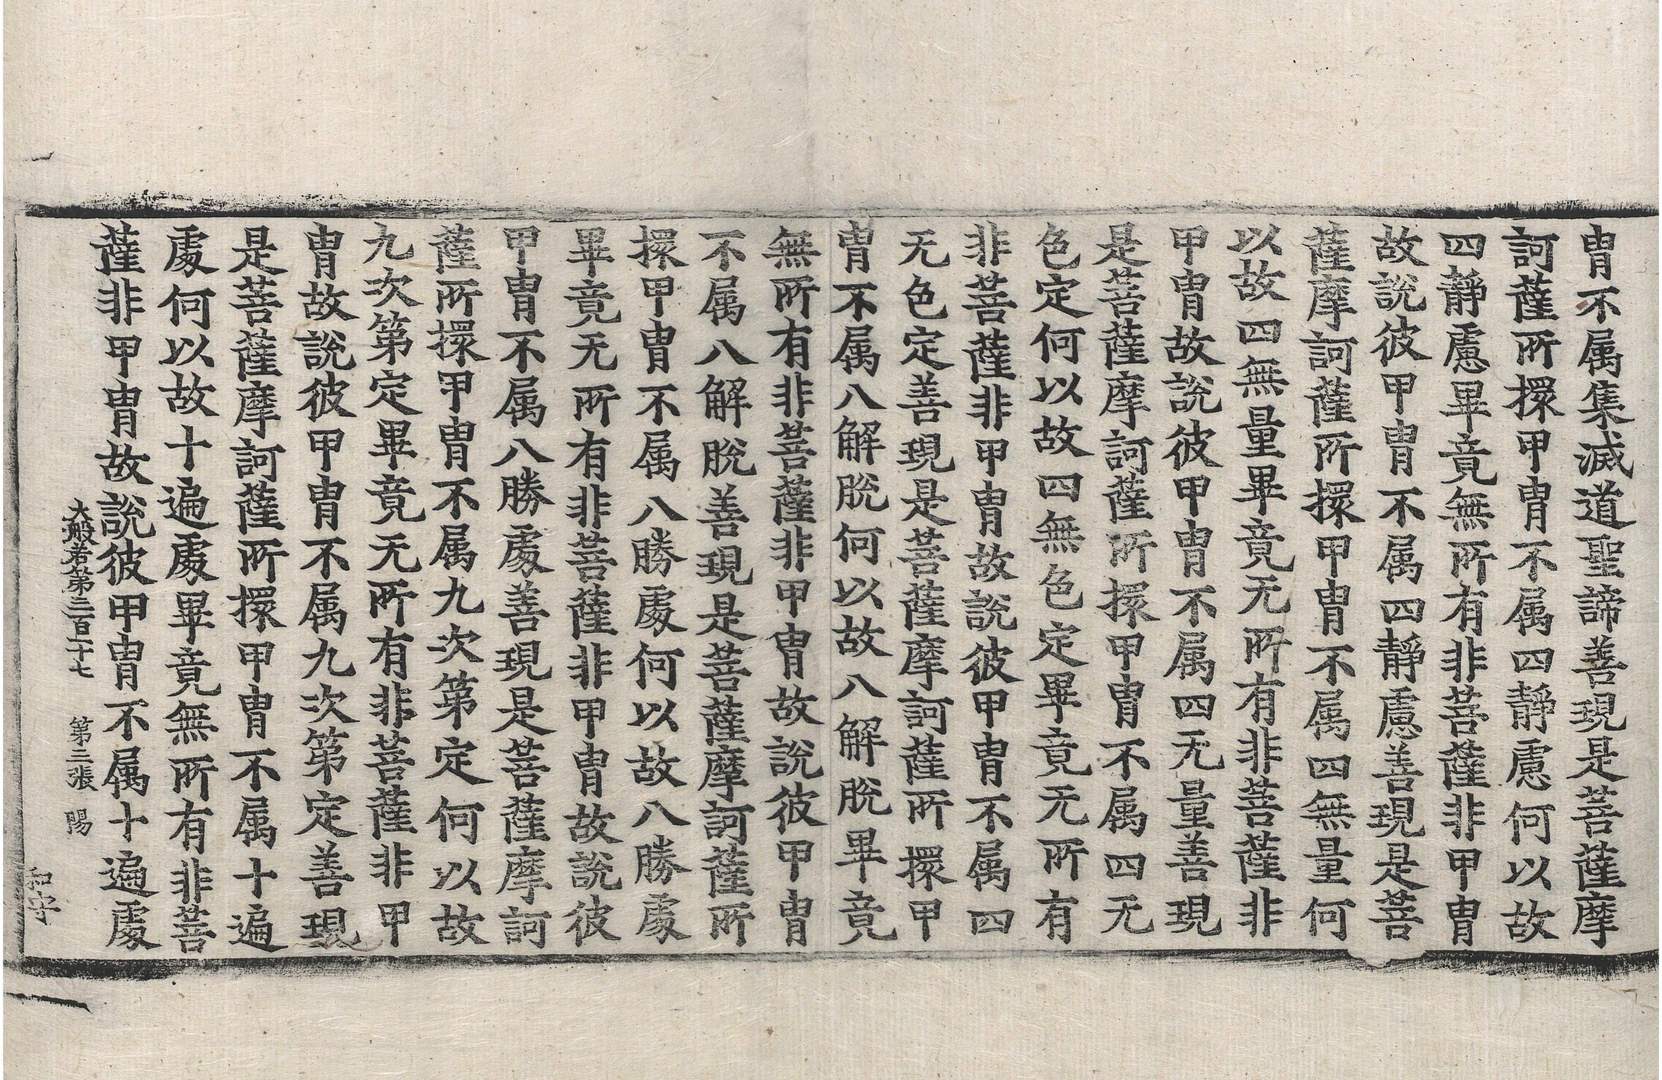 冑不属集滅道聖諦善現是菩薩摩
訶薩所擐甲冑不属四靜慮何以故
四靜慮畢竟無所有非菩薩非甲冑
故說彼甲冑不属四靜慮善現是菩
薩摩訶薩所擐甲冑不属四無量何
以故四無量畢竟无所有非菩薩非
甲冑故說彼甲冑不属四无量善現
是菩薩摩訶薩所擐甲冑不属四无
色定何以故四無色定畢竟无所有
非菩薩非甲冑故說彼甲冑不属四
无色定善現是菩薩摩訶薩所擐甲
冑不属八解脫何以故八解脫畢竟
無所有非菩薩非甲冑故說彼甲冑
不属八解脫善現是菩薩摩訶薩所
擐甲冑不属八勝處何以故八勝處
畢竟无所有非菩薩非甲冑故說彼
甲冑不属八勝處善現是菩薩摩訶
薩所擐甲冑不属九次第定何以故
九次第定畢竟无所有非菩薩非甲
冑故說彼甲冑不属九次第定善現
是菩薩摩訶薩所擐甲冑不属十遍
處何以故十遍處畢竟無所有非菩
薩非甲冑故說彼甲冑不属十遍處
大般若第三百二十七 第三張 陽
和守